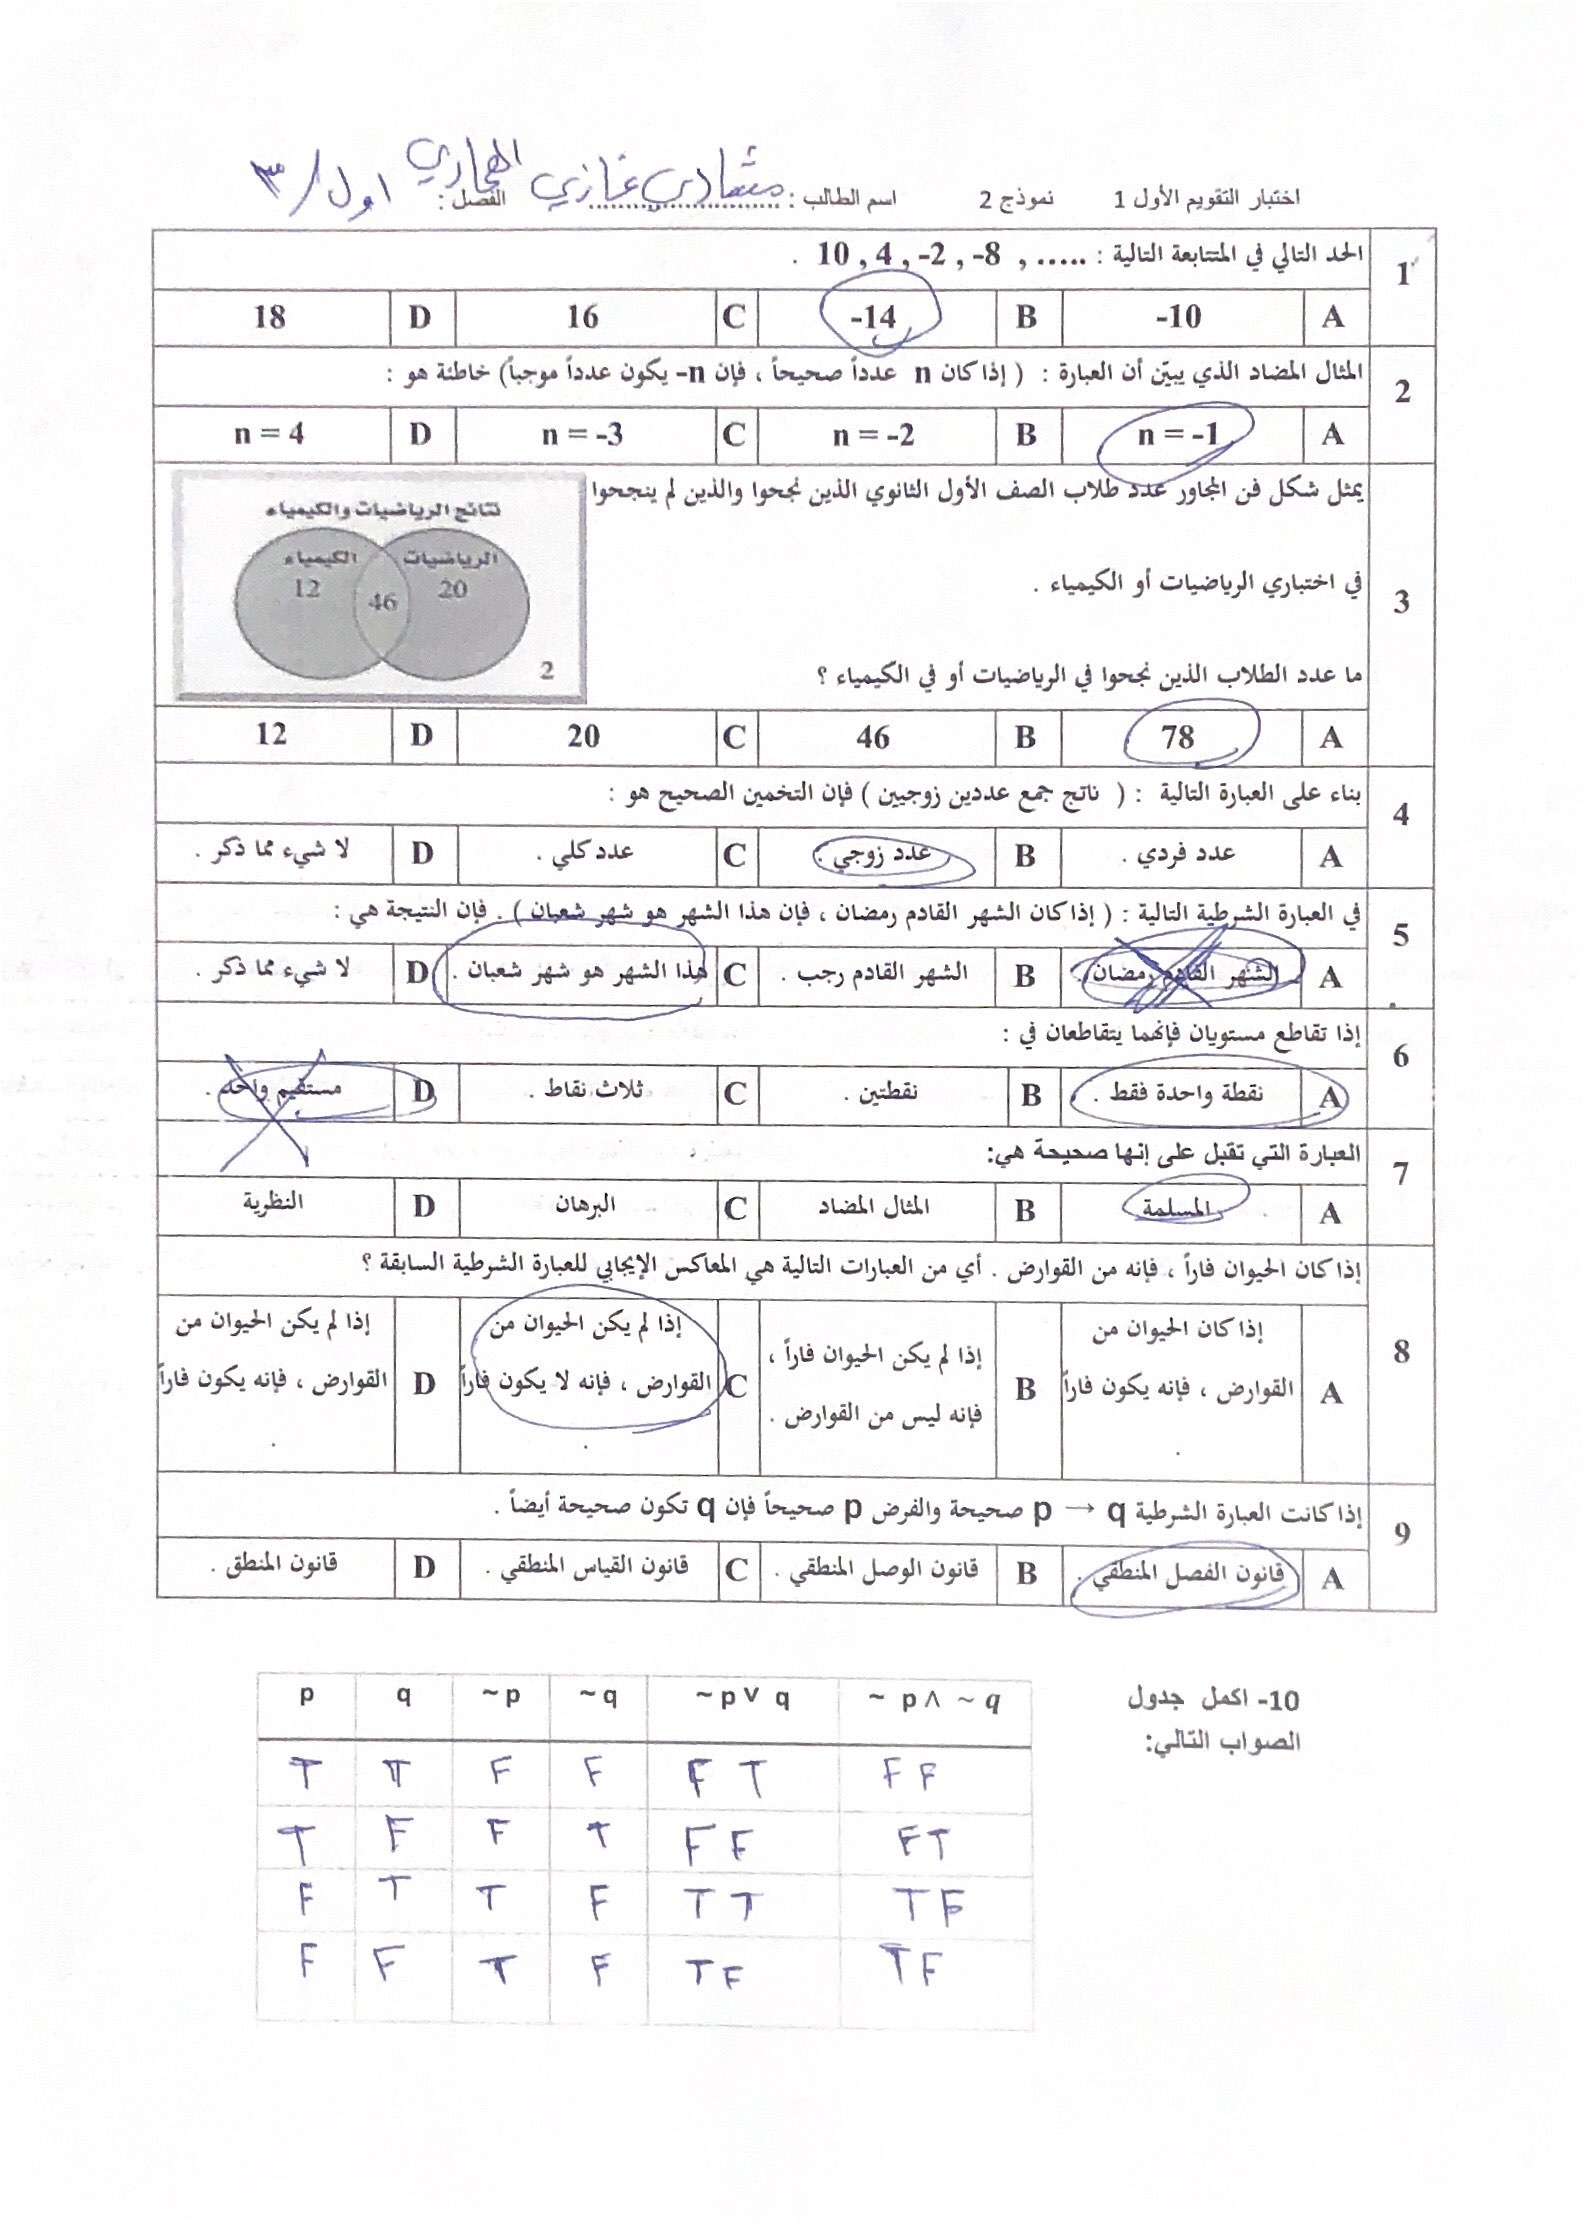 اختبار التقويم الأول 1 نموذج 2 اسم الطالب : غازي الفصل : اول / ٣
1 الحد التالي في المتتابعة التالية : 10 , 4 , -2 , -8 , ..... .
A -10 B -14 C 16 D 18
2 المثال المضاد الذي يبيّن أن العبارة : ( إذا كان n عدداً صحيحاً ، فإن n- يكون عدداً موجباً) خاطئة هو :
A n = -1 B n = -2 C n = -3 D n = 4
3 يمثل شكل فن المجاور عدد طلاب الصف الأول الثانوي الذين نجحوا والذين لم ينجحوا
في اختباري الرياضيات أو الكيمياء .
ما عدد الطلاب الذين نجحوا في الرياضيات أو في الكيمياء ؟
نتائج الرياضيات والكيمياء
الرياضيات الكيمياء
20 46 12
2
A 78 B 46 C 20 D 12
4 بناء على العبارة التالية : ( ناتج جمع عددين زوجيين ) فإن التخمين الصحيح هو :
A عدد فردي . B عدد زوجي . C عدد كلي . D لا شيء مما ذكر .
5 في العبارة الشرطية التالية : ( إذا كان الشهر القادم رمضان ، فإن هذا الشهر هو شهر شعبان ) . فإن النتيجة هي :
A الشهر القادم رمضان . B الشهر القادم رجب . C هذا الشهر هو شهر شعبان . D لا شيء مما ذكر .
6 إذا تقاطع مستويان فإنهما يتقاطعان في :
A نقطة واحدة فقط . B نقطتين . C ثلاث نقاط . D مستقيم واحد .
7 العبارة التي تقبل على إنها صحيحة هي:
A المسلمة B المثال المضاد C البرهان D النظرية
8 إذا كان الحيوان فاراً ، فإنه من القوارض . أي من العبارات التالية هي المعاكس الإيجابي للعبارة الشرطية السابقة ؟
A إذا كان الحيوان من القوارض ، فإنه يكون فاراً . B إذا لم يكن الحيوان فاراً ، فإنه ليس من القوارض . C إذا لم يكن الحيوان من القوارض ، فإنه لا يكون فاراً . D إذا لم يكن الحيوان من القوارض ، فإنه يكون فاراً .
9 إذا كانت العبارة الشرطية p → q صحيحة والفرض p صحيحاً فإن q تكون صحيحة أيضاً .
A قانون الفصل المنطقي . B قانون الوصل المنطقي . C قانون القياس المنطقي . D قانون المنطق .
10- اكمل جدول
الصواب التالي:
p q ~p ~q ~p∨ q ~ p∧ ~q
T T F F F T F F
T F F T F F F T
F T T F T T T F
F F T F T F T F